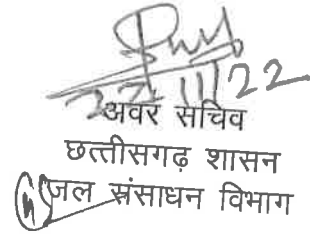 22/11/22
अवर सचिव
छत्तीसगढ़ शासन
जल संसाधन विभाग